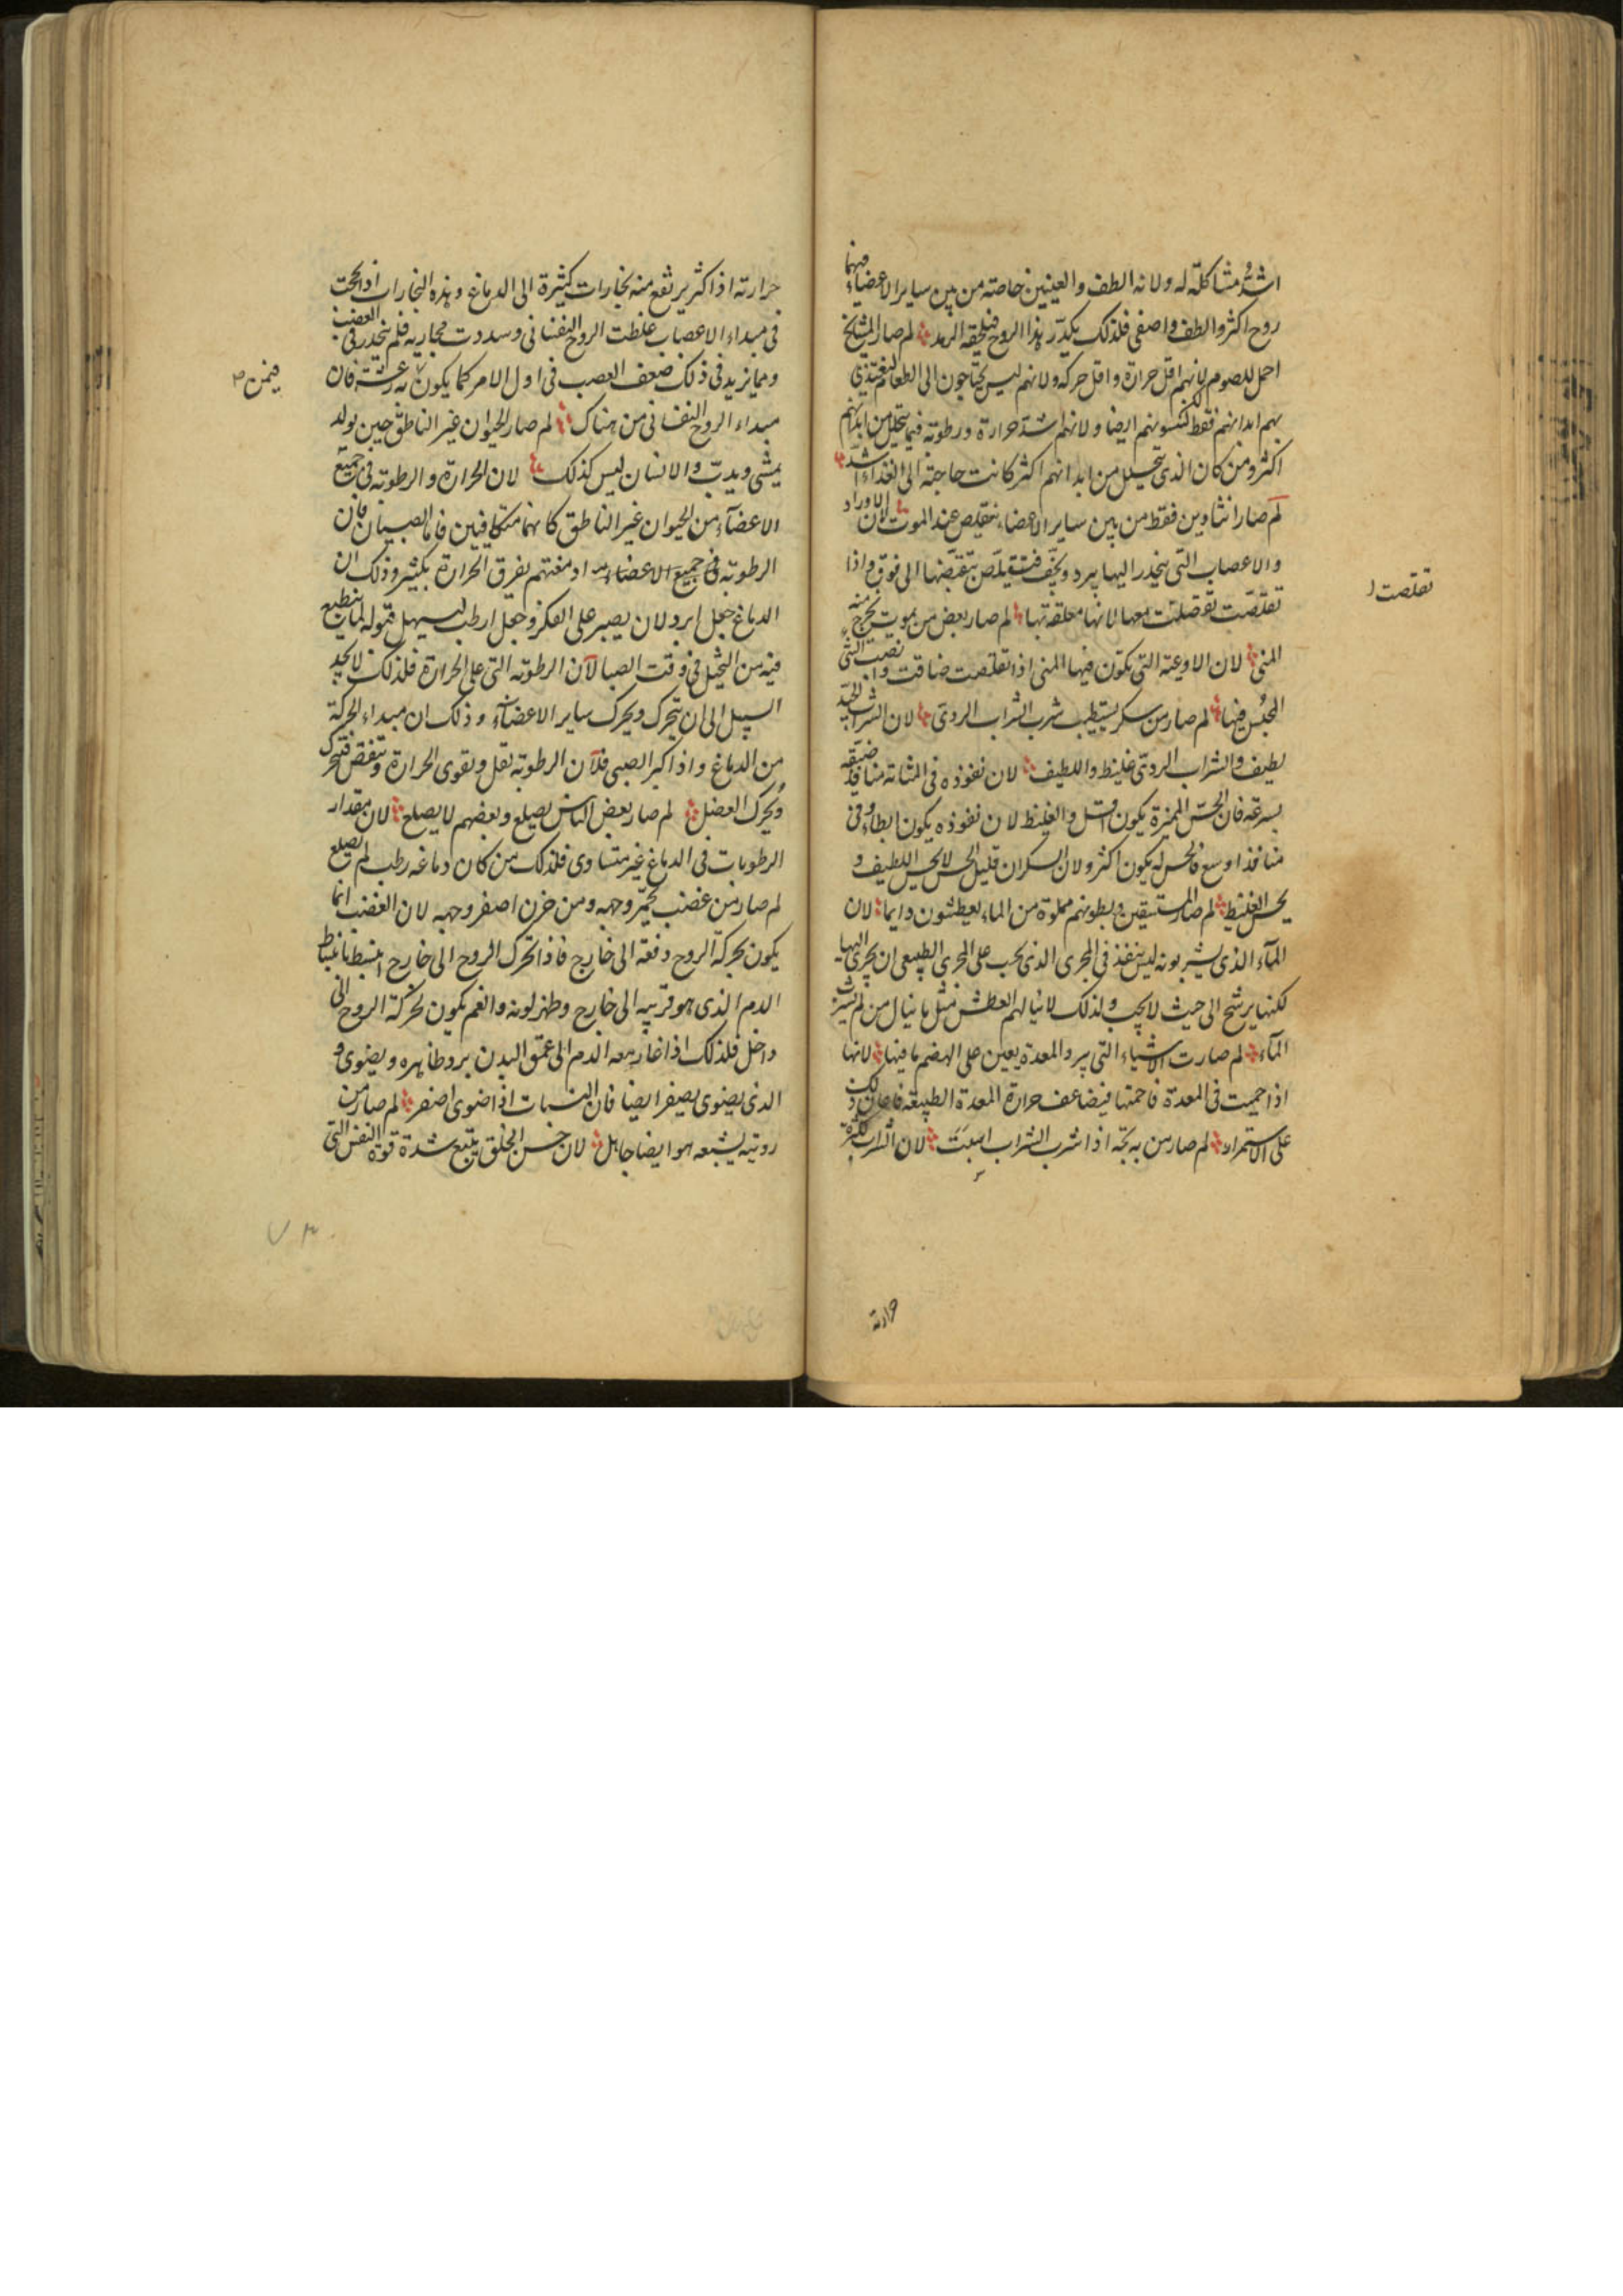 اشد مشاكلة له ولانه الطف والعينين خاصة من بين ساير الاعضاء فيهما
روح اكثر والطف واصفى فلذلك يكدر هذا الروح فيلحقه الرمد لم صار المشايخ
احمل للصوم لانهم اقل حرارة واقل حركه ولانهم ليس يحتاجون الى الطعام ليغتذي
بهم ابدانهم فقط لكن ايضا ولانهم اشد حرارة ورطوبة فما يتحلل من ابدانهم
اكثر ومن كان الذى يتحلل من ابدانهم اكثر كانت حاجته الى الغذاء اشد
لم صار انثاوين فقط من بين ساير الاعضاء تتقلص عند الموت لان الاوراد
والاعصاب التى ينحدر اليها يبرد ويجف فتتقلص بتقبضها الى فوق واذا
تقلصت تقلصت معها لانها معلقة بها لم صار بعض من يموت يخرج منه
تقلصت
المنى لان الاوعية التى يكون فيها المنى اذا تقلصت ضاقت الشى
المحبس فيها لم صار من سكر يستطيب شرب الشراب الردى لان الشراب الجيد
لطيف والشراب الردى غليظ واللطيف لان نفوذه فى المثانة منافذ ضيقه
بسرعة فان الحس المميزة يكون اقل والغليظ لان نفوذه يكون ابطاء وفى
منافذ اوسع فالحس له يكون اكثر ولان السكران قليل الحس لا يحس اللطيف و
يحس الغليظ لم صار المستسقين وبطونهم مملوة من الماء يعطشون دايما لان
المآء الذى يشربونه ليس ينفذ فى المجرى الذى يجب على المجرى الطبيعى ان يجرى اليها
لكنها يرشح الى حيث لا يجب ولذلك لا ينالهم العطش مثل ما ينال من لم يشرب
المآء لم صارت الاشياء التى يبرد المعدة يعين على الهضم ما فيها لانها
اذا حميت فى المعدة فاحمتها فيضاعف حرارة المعدة الطبيعة فاعان ذلك
على الاستمراء لم صار من به بحة اذا شرب الشراب لان الشراب لكثرة
حرارته
حرارته اذا كثر يرتفع منه بخارات كثيرة الى الدماغ وهذه البخارات اذا لحجت
فى مبداء الاعصاب غلظت الروح النفسانى وسددت مجاريه فلم ينحدر فى العصب
ومما يزيد فى ذلك ضعف العصب فى اول الامر كما يكون به رعشة فان
فيمن
مبداء الروح النفسانى من هناك لم صار الحيوان غير الناطق حين يولد
يمشى ويدب والانسان ليس كذلك لان الحرارة والرطوبة فى جميع
الاعضآء من الحيوان غير الناطق كانهما متكافيين فاما الصبيان فان
الرطوبة فى جميع الاعضاء ادمغتهم تفرق الحرارة بكثير وذلك ان
الدماغ جعل ابرد لان يصبر على الفكر وجعل ارطب ليسهل قبوله لما ينطبع
فيه من التخيل فى وقت الصبا لآن الرطوبة التى على الحرارة فلذلك لا يجد
السبيل الى ان يتحرك ويحرك ساير الاعضآء وذلك ان مبداء الحركة
من الدماغ واذا كبر الصبى فلآن الرطوبة تقل وتقوى الحرارة وتنقص فتحرك
ويحرك العضل لم صار بعض الناس يصلع وبعضهم لا يصلع لان مقدار
الرطوبات فى الدماغ غير متساوى فلذلك من كان دماغه رطب لم يصلع
لم صار من غضب يحمر وجهه ومن حزن اصفر وجهه لان الغضب انما
يكون بحركة الروح دفعة الى خارج فاذا تحرك الروح الى خارج انبسط بانبساط
الدم الذى هو قريبه الى خارج وظهر لونه والغم يكون بحركة الروح الى
داخل فلذلك اذا غار معه الدم الى عمق البدن برد ظاهره ويضوى و
الذى يضوى يصفر ايضا فان النبات اذا ضوى اصفر لم صار من
رويته يشبعه هو ايضا جاهل لان حسن الخلق يتبع شدة قوة النفس التى